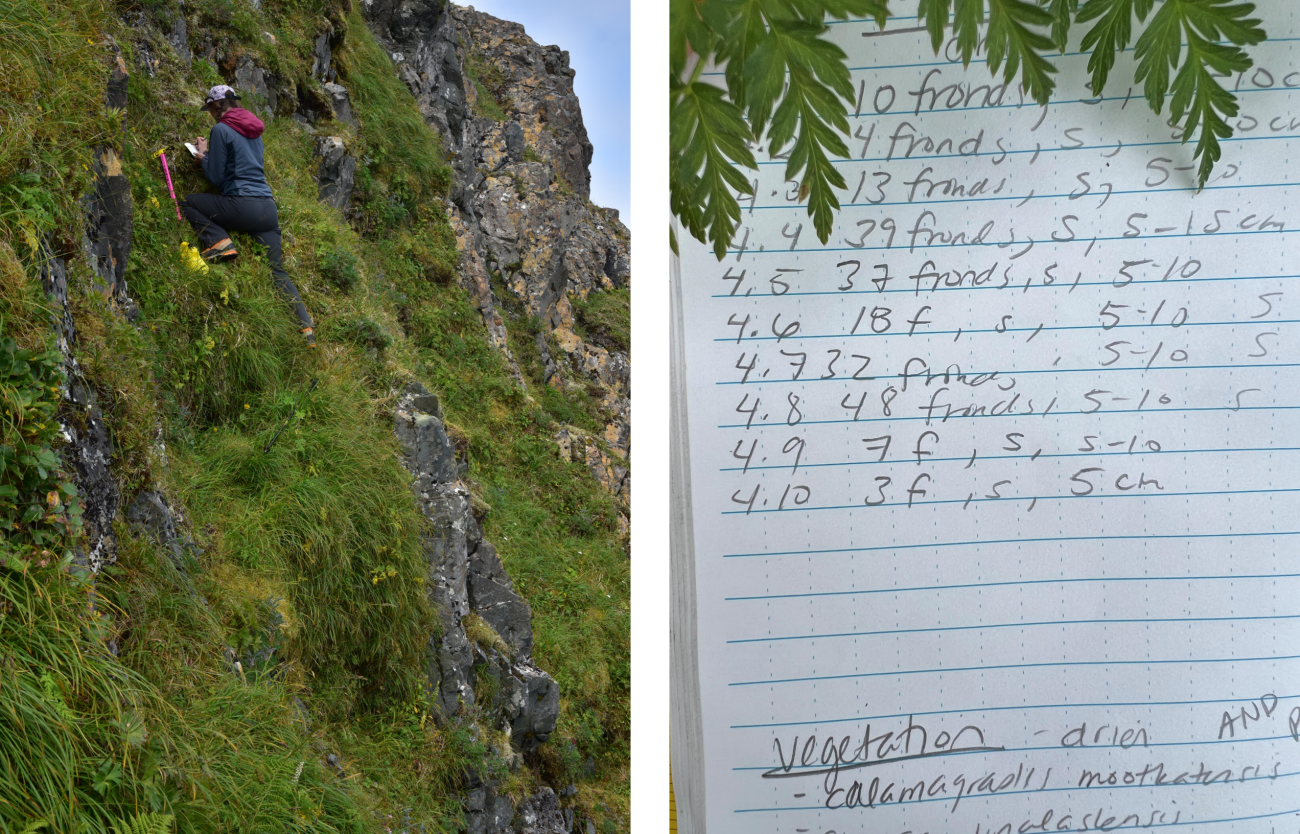 10 fronds, s, 10c
4 fronds, s, 10cm
13 fronds, s, 5-10
4.4 39 fronds, s, 5-15cm
4.5 37 fronds, s, 5-10
4.6 18 f, s, 5-10 S
4.7 32 fronds, 5-10 S
4.8 48 fronds, 5-10 S
4.9 7 f, s, 5-10
4.10 3 f, s, 5 cm
Vegetation - drier AND
- calamagrostis nootkatensis
unalaskensis